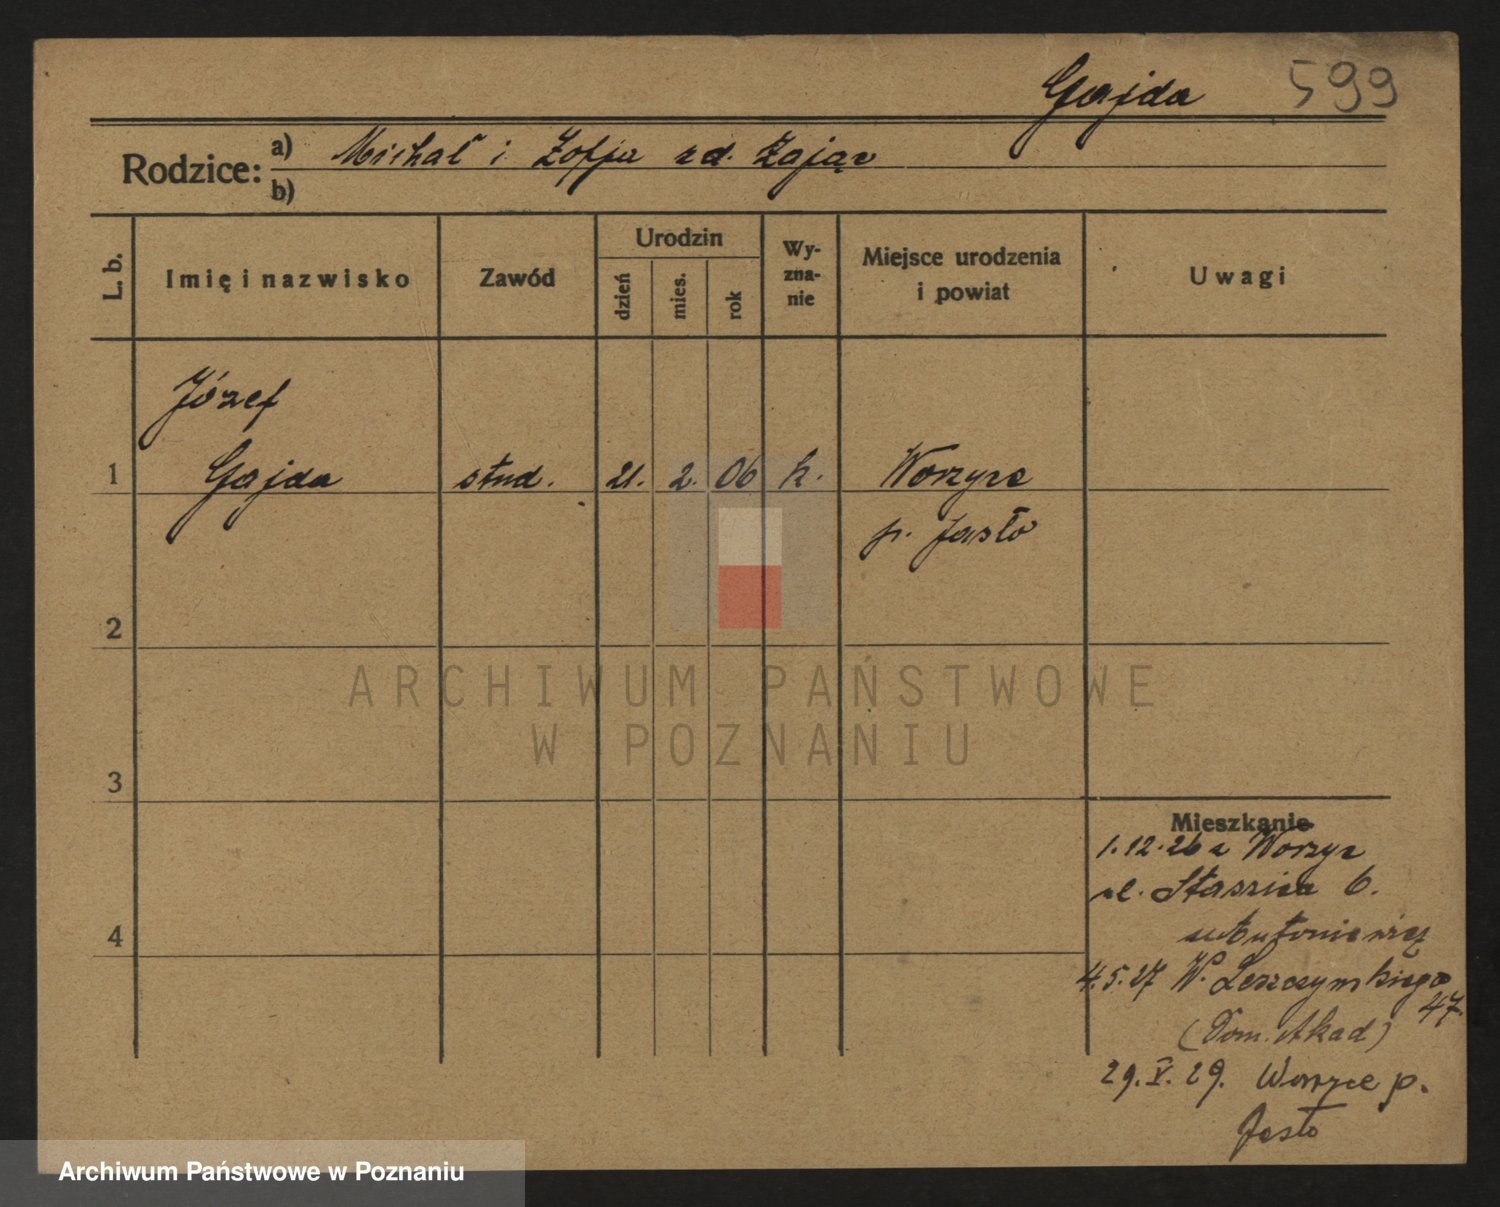 Gajda 599
Rodzice: a) Michał i Zofja zd. Zając
b)
L. b. Imię i nazwisko Zawód Urodzin dzień mies. rok Wy-zna-nie Miejsce urodzenia i powiat Uwagi
Józef
1 Gajda stud. 21. 2. 06 k. Warzyce
p. Jasło
2
ARCHIWUM PAŃSTWOWE
W POZNANIU
3
Mieszkanie
1.12.26 z Warzyc
ul. Staszica 6.
u Antoniewicz
4
4.5.27 W. Leszczyńskiego
47.
(Dom. Akad)
29.V.29. Warzyce p.
Jasło
Archiwum Państwowe w Poznaniu